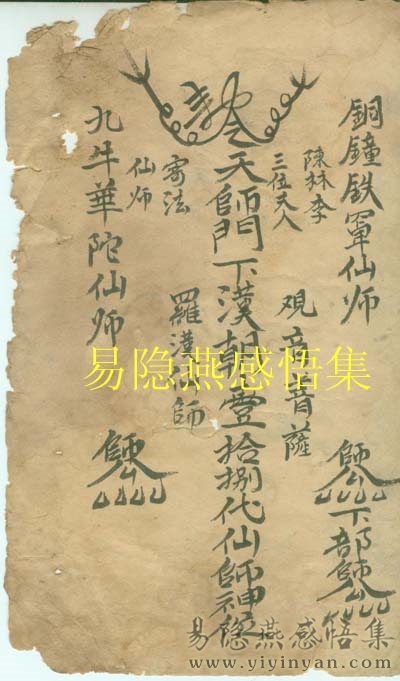 銅鐘鉄軍仙师
師公
下部師公
陳林李
三位夫人
覌音菩薩
天師門下漢朝壹拾捌代仙師神
寄法
仙师
羅漢師
九牛華陀仙师
師公
易隐燕感悟集
易隐燕感悟集
www.yiyinyan.com